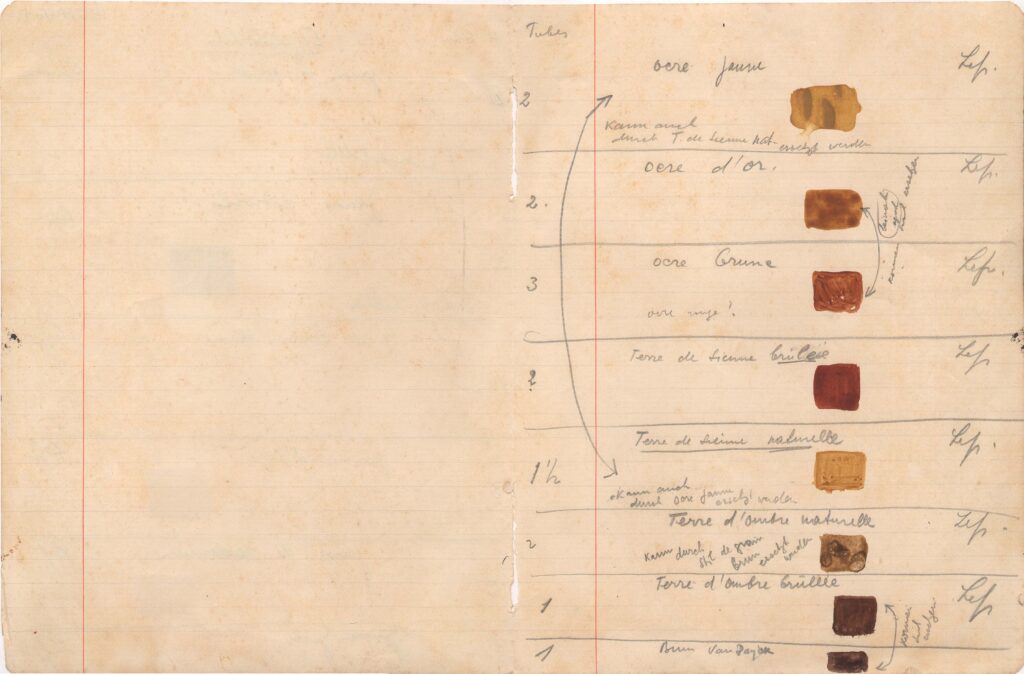 Tubes
ocre jaune Lef.
2
Kann auch
durch T. de Sienne nat. ersetzt werden
ocre d'or. Lef.
2.
ocre brune Lef.
3
ocre rouge!
Terre de Sienne brûlée Lef.
2
Terre de Sienne naturelle Lef.
1½
Kann auch
durch Ocre jaune ersetzt werden
Terre d'ombre naturelle Lef.
2
Kann durch
Stil de grain
brun ersetzt
werden
Terre d'ombre brûlée Lef.
1
1 Brun Van Dayck